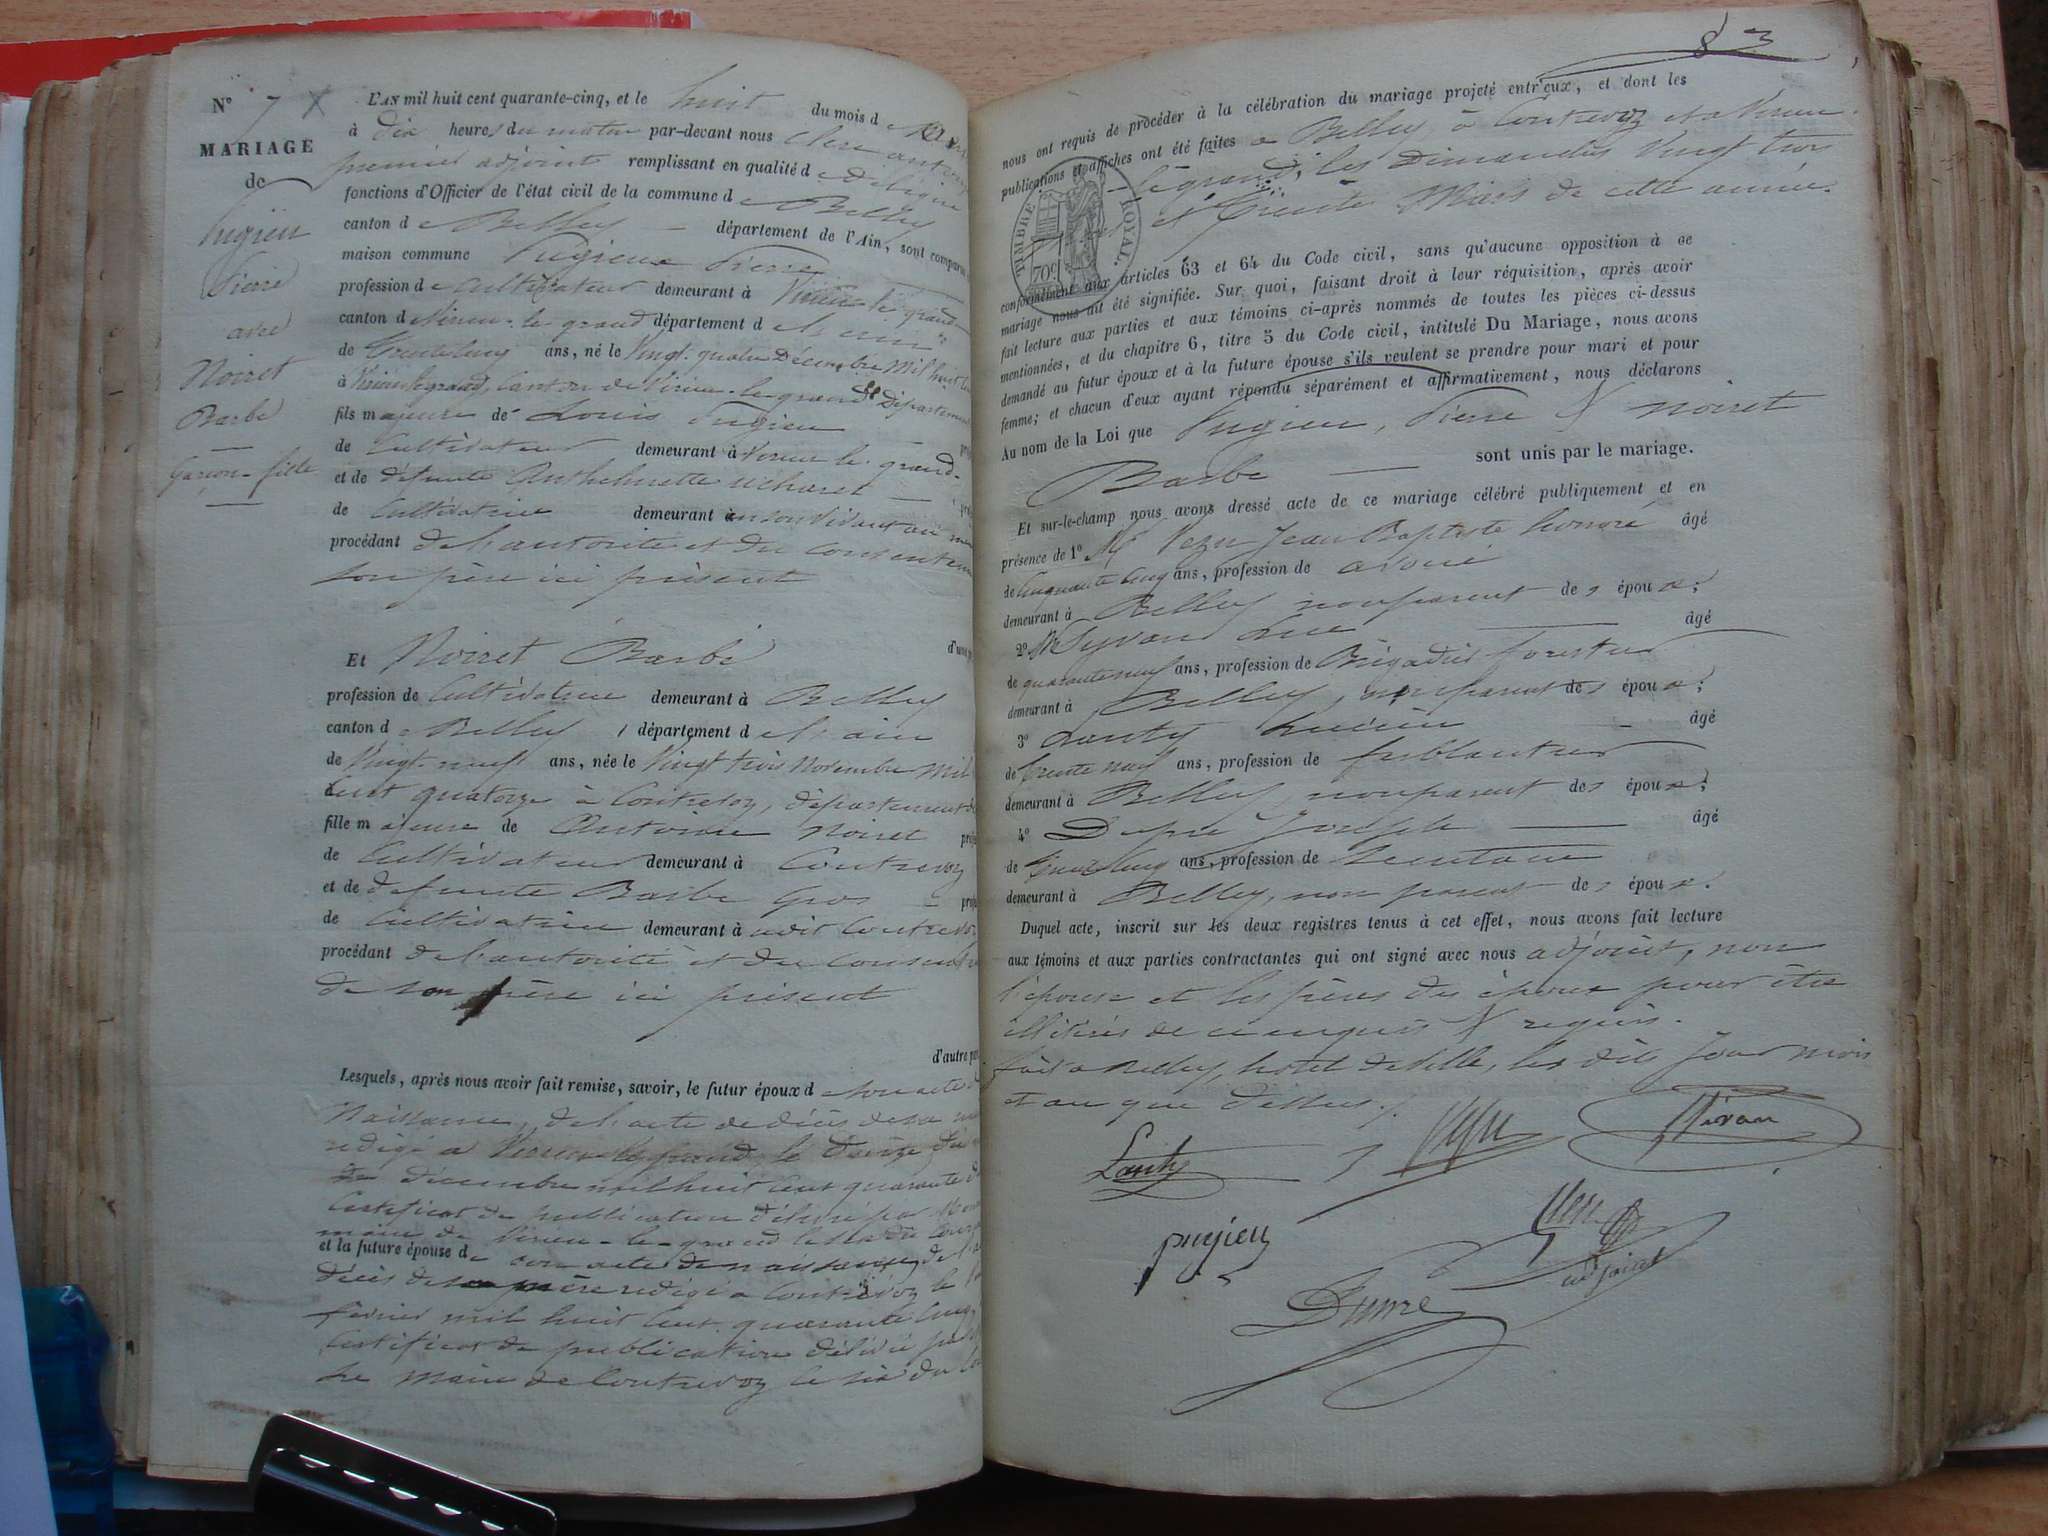 N° 7
MARIAGE
de
Pugieu
Pierre
avec
Noiret
Barbe
Garçon - fille
L'AN mil huit cent quarante-cinq, et le huit du mois d
à dix heures du matin par-devant nous Clerc
premier adjoint remplissant en qualité de délégué
fonctions d'Officier de l'état civil de la commune de Belley
canton de Belley département de l'Ain, sont comparus
maison commune Pugieu Pierre
profession de cultivateur demeurant à Virieu-le-grand
canton de Virieu-le-grand département de l'ain
de trente cinq ans, né le vingt-quatre Décembre mil huit
à Virieu-le-grand, canton de Virieu-le-grand Département
fils majeure de Louis Pugieu
de cultivateur demeurant à Virieu le grand
et de défunte Anthelmette
de cultivatrice demeurant en son vivant au
procédant de l'autorité et du
son père ici présent
Et Noiret Barbe d'une
profession de cultivatrice demeurant à Belley
canton de Belley, département de l'ain
de vingt-neuf ans, née le vingt trois Novembre mil
cent quatorze à Contrevoz, département
fille majeure de Antoine Noiret
de cultivateur demeurant à Contrevoz
et de défunte Barbe Gros
de cultivatrice demeurant à
procédant de l'autorité et du
de son père ici présent
d'autre
Lesquels, après nous avoir fait remise, savoir, le futur époux de son acte
Naissance, de l'acte de décès de sa
rédigé à Virieu-le-grand, le
décembre mil huit cent quarante
certificat de publication délivré par
maire de Virieu-le-grand le
et la future épouse de son acte de naissance, de
décès de sa mère rédigé à Contrevoz le
février mil huit cent quarante cinq,
certificat de publication délivré par
le Maire de Contrevoz le six du
83
nous ont requis de procéder à la célébration du mariage projeté entr'eux, et dont les
publications et affiches ont été faites à Belley, à Contrevoz et à Virieu
le grand, les Dimanches vingt trois
et trente Mars de cette année.
TIMBRE ROYAL.
70c
conformément aux articles 63 et 64 du Code civil, sans qu'aucune opposition à ce
mariage nous ait été signifiée. Sur quoi, faisant droit à leur réquisition, après avoir
fait lecture aux parties et aux témoins ci-après nommés de toutes les pièces ci-dessus
mentionnées, et du chapitre 6, titre 5 du Code civil, intitulé Du Mariage, nous avons
demandé au futur époux et à la future épouse s'ils veulent se prendre pour mari et pour
femme; et chacun d'eux ayant répondu séparément et affirmativement, nous déclarons
Au nom de la Loi que Pugieu, Pierre & Noiret
Barbe sont unis par le mariage.
Et sur-le-champ nous avons dressé acte de ce mariage célébré publiquement et en
présence de 1° M Vezu Jean Baptiste honoré âgé
de cinquante cinq ans, profession de avoué
demeurant à Belley non parent des époux;
2° Mr Syvan Luc âgé
de quarante neuf ans, profession de Brigadier forestier
demeurant à Belley, non parent des époux;
3° Lanty Lucien âgé
de trente neuf ans, profession de ferblantier
demeurant à Belley, non parent des époux;
4° Joseph âgé
de trente cinq ans, profession de Secrétaire
demeurant à Belley, non parent des époux.
Duquel acte, inscrit sur les deux registres tenus à cet effet, nous avons fait lecture
aux témoins et aux parties contractantes qui ont signé avec nous adjoint, non
l'épouse et les pères des époux pour être
illitérés de ce enquis & requis.
fait à Belley, hotel de Ville, les dits jour mois
et an que dessus.
Lanty
pugieu
adjoint